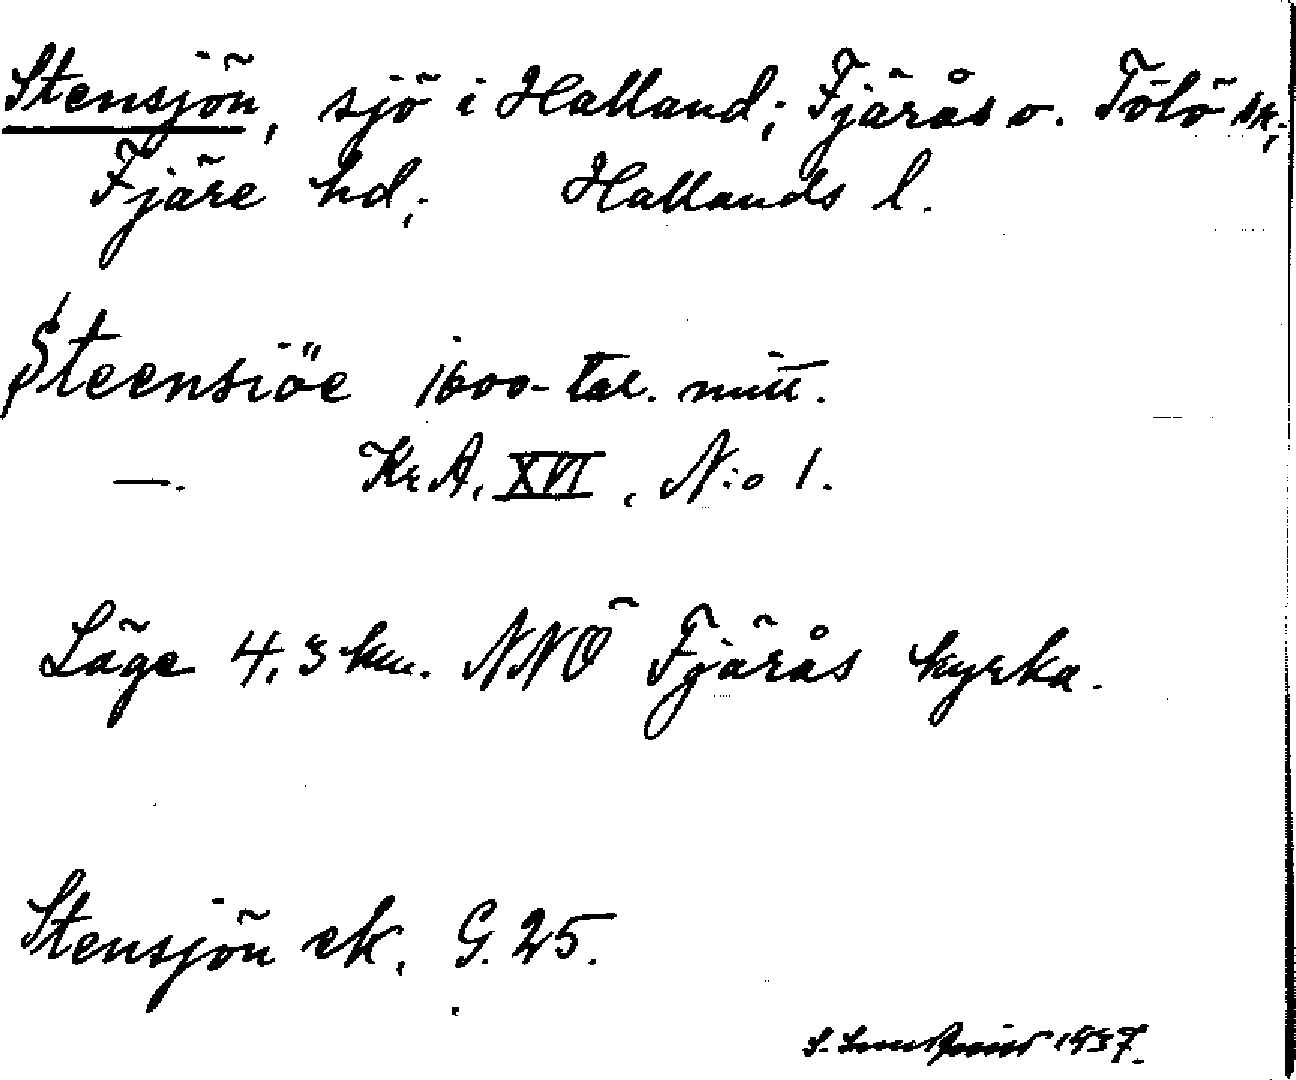 Stensjön, sjö i Halland; Fjärås o. Tölö sn;
Fjäre hd; Hallands l.
Steensiöe 1600-tal. mitt.
—. Kr A, XVI, N:o 1.
Läge 4,3 km. NNÖ Fjärås kyrka.
Stensjön ek, G. 25.
S. 1937.